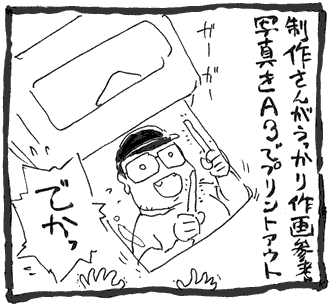 制作さんがうっかり作画参考
写真をA3でプリントアウト
ガーガー
でかっ